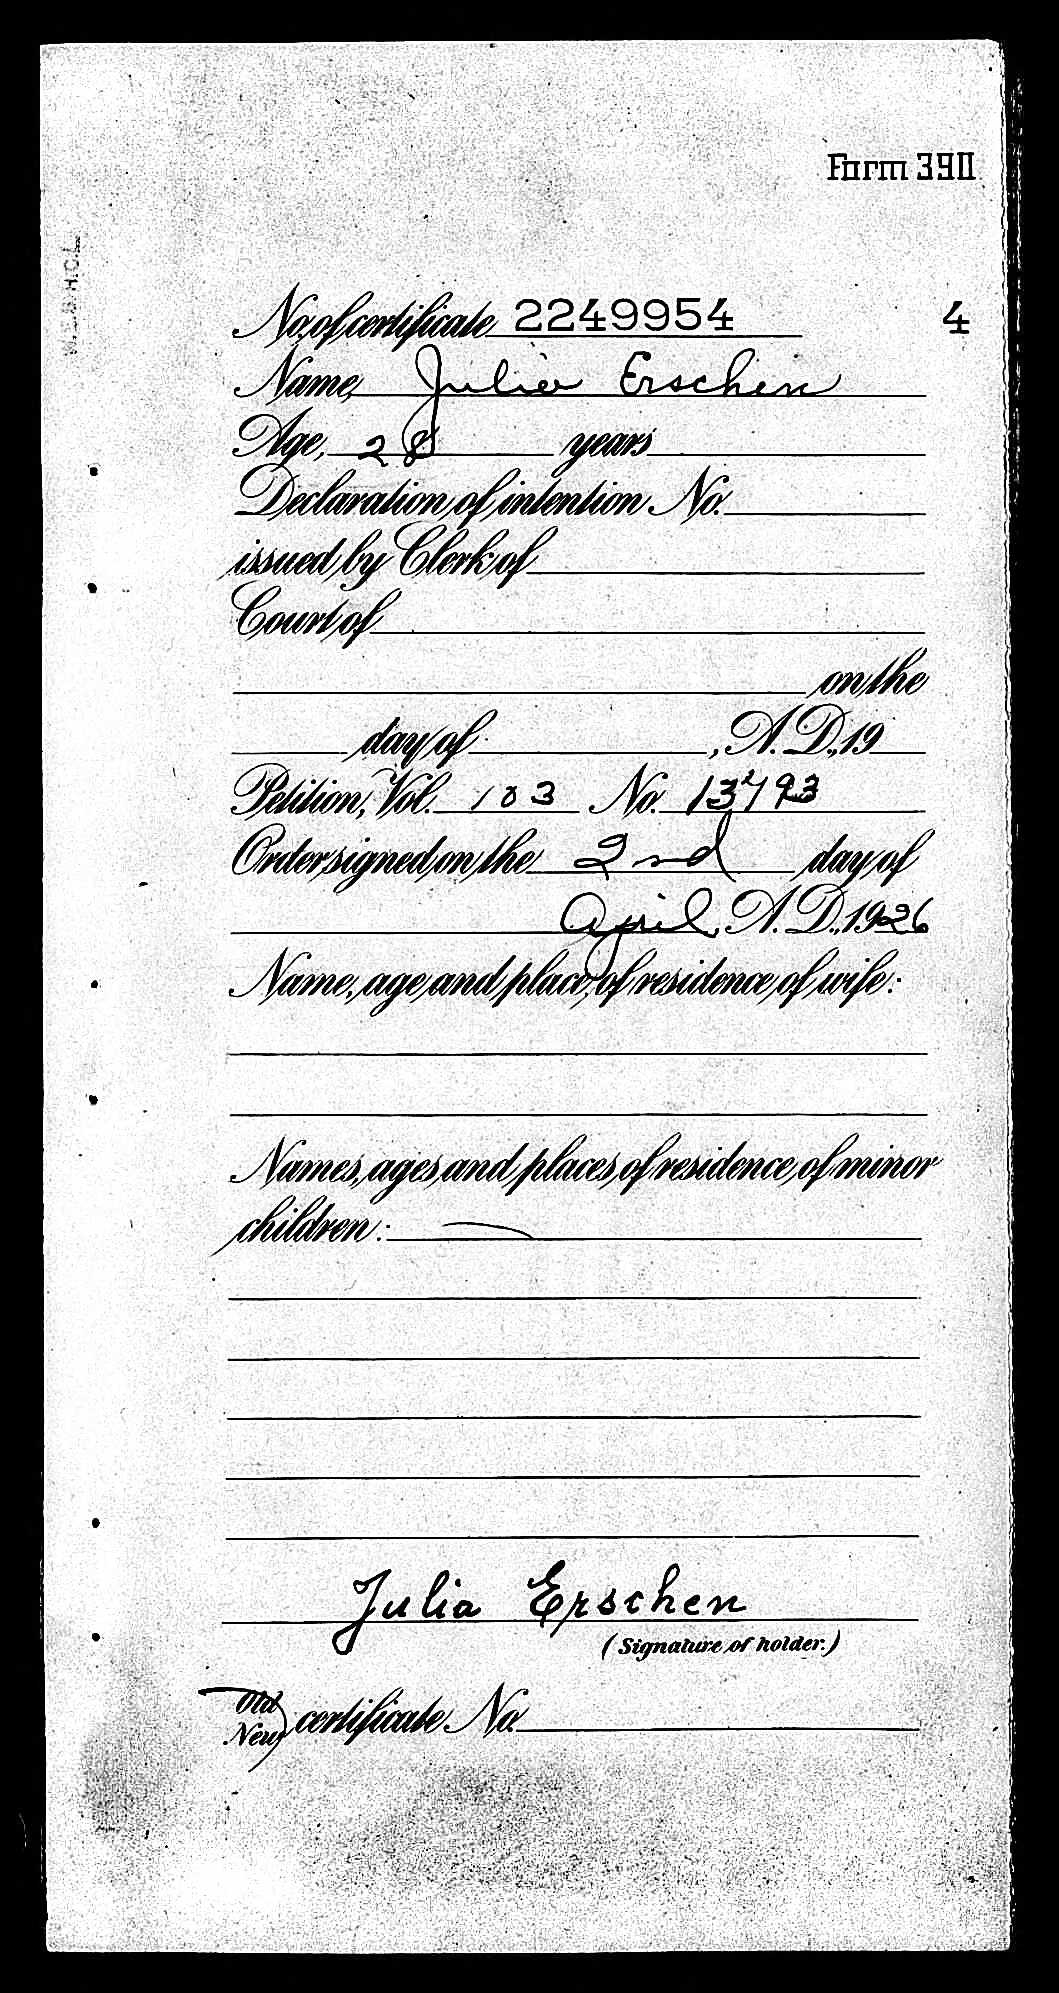 Form 390
No. of certificate 2249954 4
Name, Julia Erschen
Age, 28 years
Declaration of intention No.
issued by Clerk of
Court of
on the
day of , A. D., 19
Petition, Vol. 103 No. 13793
Order signed on the 2nd day of
April, A. D., 1926
Name, age and place of residence of wife:
Names, ages and places of residence of minor
children: —
Julia Erschen
(Signature of holder.)
Old
New certificate No.